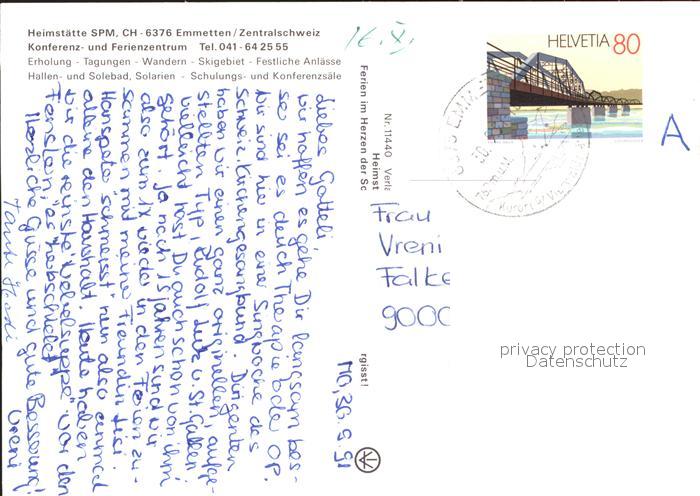 Heimstätte SPM, CH - 6376 Emmetten/Zentralschweiz
Konferenz- und Ferienzentrum Tel. 041 - 64 25 55
Erholung - Tagungen - Wandern - Skigebiet - Festliche Anlässe
Hallen- und Solebad, Solarien - Schulungs- und Konferenzsäle
16. X.
HELVETIA 80
A
Mo, 30. 9. 91
liebes Gotteli,
wir hoffen es gehe Dir langsam bes-
ser sei es durch Therapie oder OP.
Wir sind hier in einer Singwoche des
schweiz. Kirchengesangbund. Dirigenten
haben wir einen ganz originellen, aufge-
stellten Typ, Rudolf Lutz v. St. Gallen.
Vielleicht hast Du auch schon von ihm
gehört. Ja nach 15 Jahren sind wir
also zum 1x wieder in den Ferien zu-
sammen mit meiner Freundin Lisi.
Hanspeter "schmeisst" nun also einmal
alleine den Haushalt. Heute haben
wir die reinste "Nebelsuppe" vor den
Fenstern, es herbschtelet
Herzliche Grüsse und gute Besserung!
Vreni
Nr. 11440 Verla
Heimst
Ferien im Herzen der Sc
rgisst!
Frau
Vreni
Falke
9000
privacy protection
Datenschutz